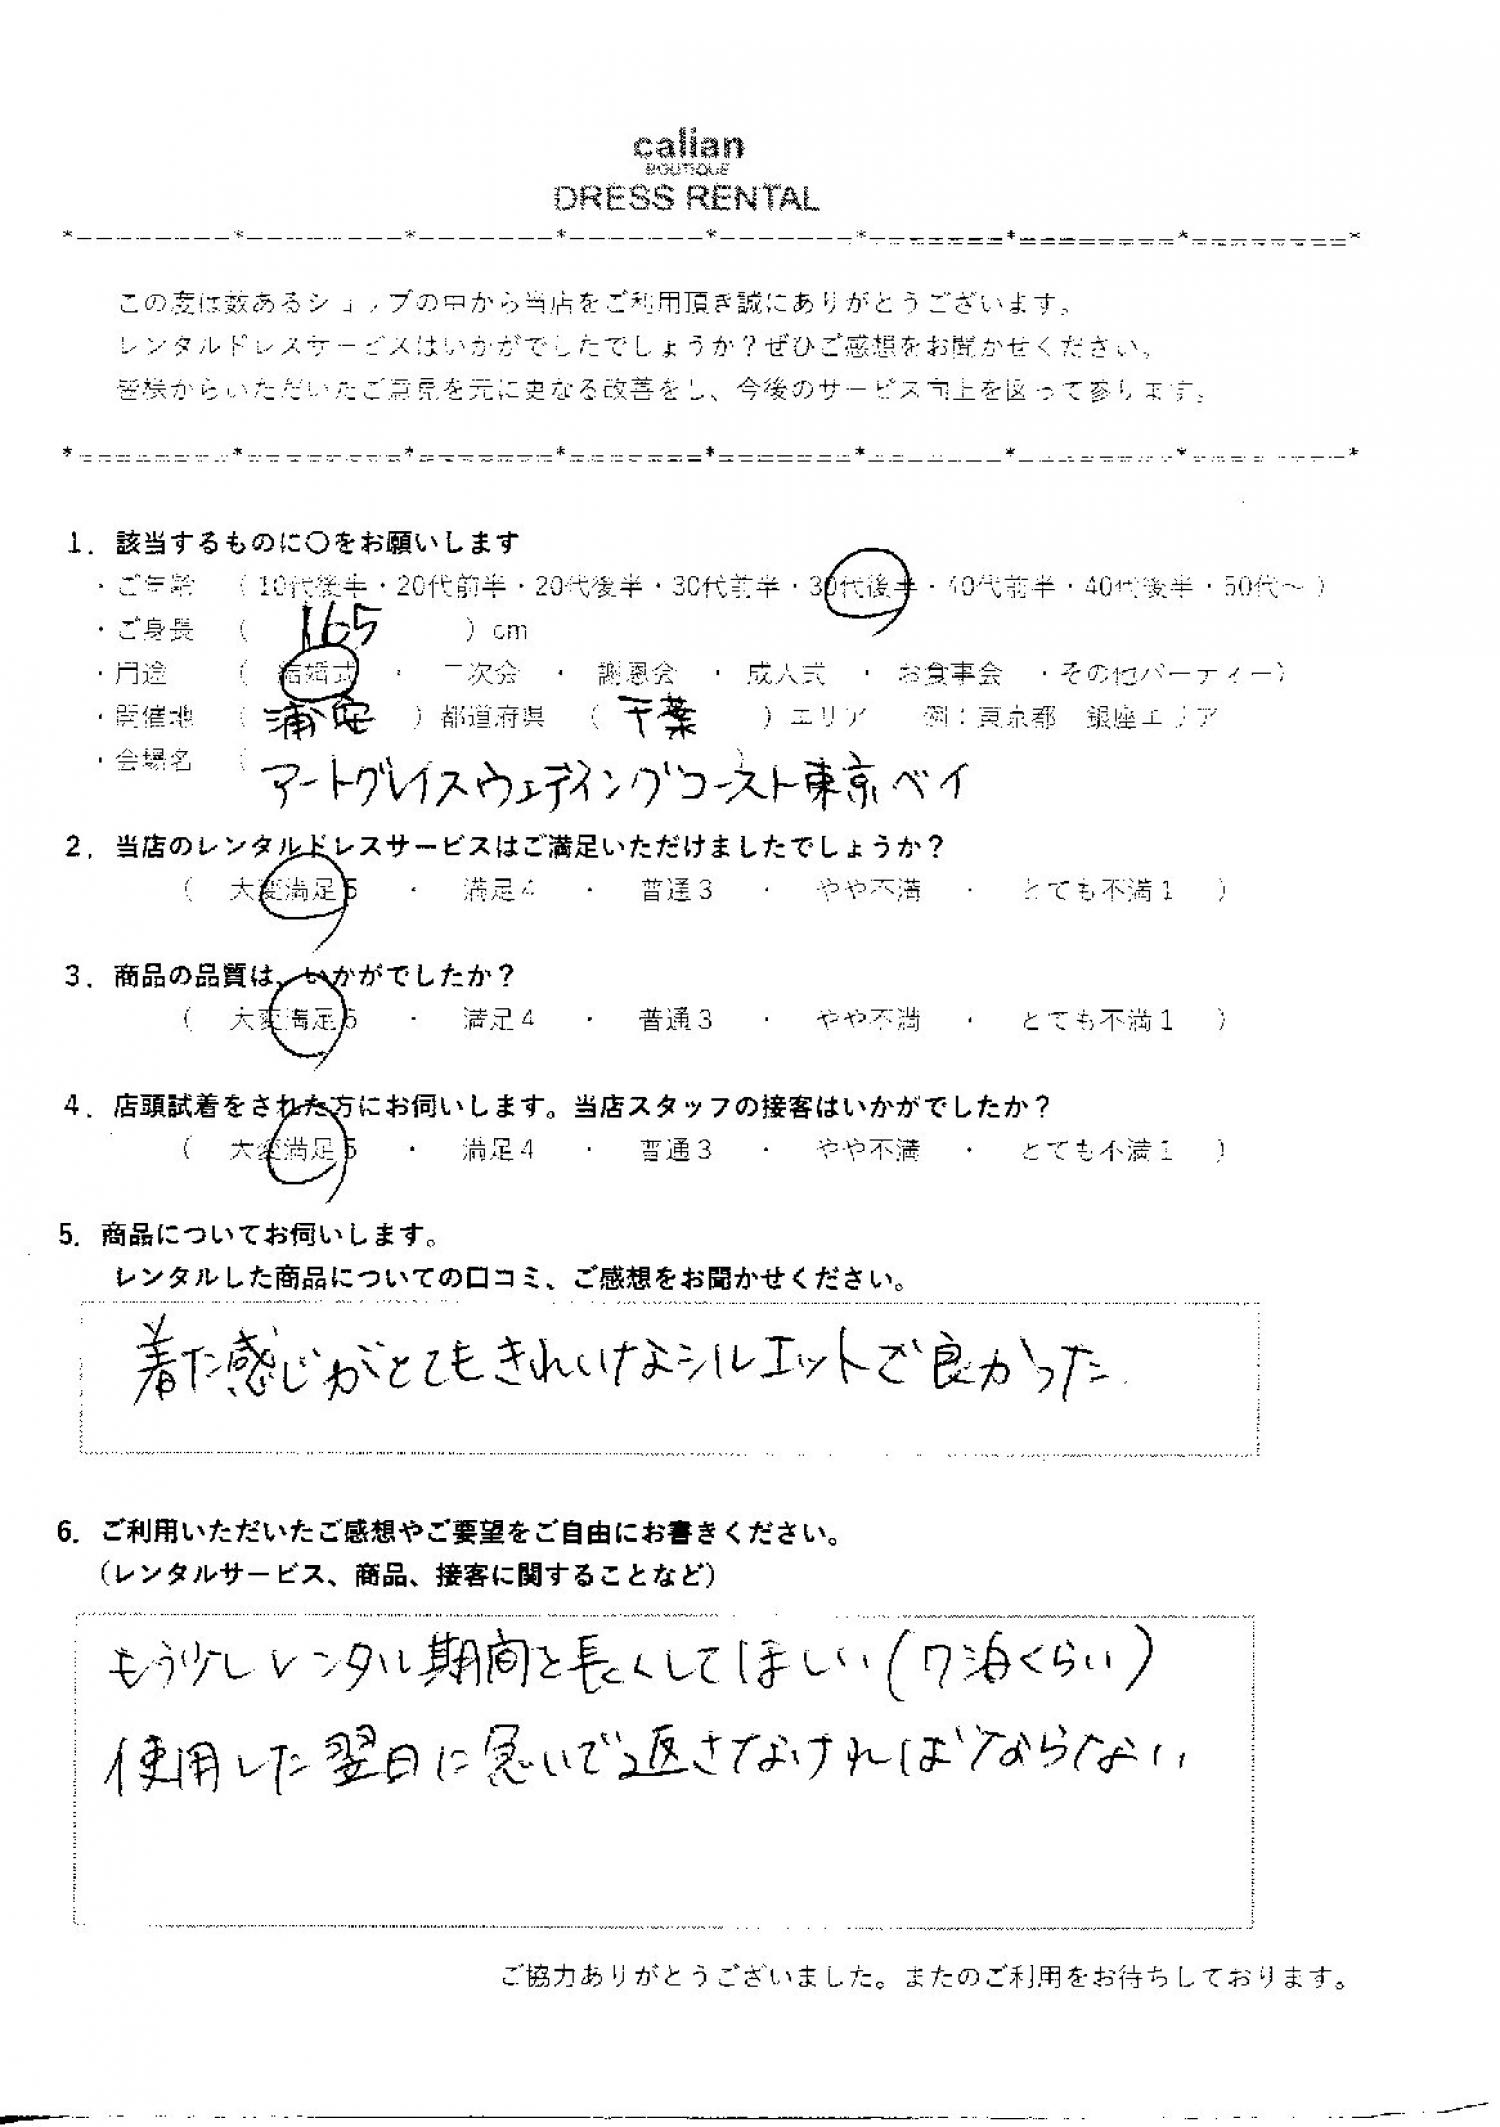 calian
BOUTIQUE
DRESS RENTAL
*--------*--------*-------*-------*-------*-------*--------*--------*
この度は数あるショップの中から当店をご利用頂き誠にありがとうございます。
レンタルドレスサービスはいかがでしたでしょうか？ぜひご感想をお聞かせください。
皆様からいただいたご意見を元に更なる改善をし、今後のサービス向上を図って参ります。
*--------*--------*-------*-------*-------*-------*--------*--------*
1. 該当するものに〇をお願いします
・ご年齢 （10代後半・20代前半・20代後半・30代前半・30代後半・40代前半・40代後半・50代～）
・ご身長 （ 165 ）cm
・用途 （ 結婚式 ・ 二次会 ・ 謝恩会 ・ 成人式 ・ お食事会 ・その他パーティー）
・開催地 （ 浦安 ）都道府県 （ 千葉 ）エリア 例：東京都 銀座エリア
・会場名 （ アートグレイスウェディングコースト東京ベイ
2. 当店のレンタルドレスサービスはご満足いただけましたでしょうか？
（ 大変満足5 ・ 満足4 ・ 普通3 ・ やや不満 ・ とても不満1 ）
3. 商品の品質は、いかがでしたか？
（ 大変満足5 ・ 満足4 ・ 普通3 ・ やや不満 ・ とても不満1 ）
4. 店頭試着をされた方にお伺いします。当店スタッフの接客はいかがでしたか？
（ 大変満足5 ・ 満足4 ・ 普通3 ・ やや不満 ・ とても不満1 ）
5. 商品についてお伺いします。
レンタルした商品についての口コミ、ご感想をお聞かせください。
着た感じがとてもきれいなシルエットで良かった
6. ご利用いただいたご感想やご要望をご自由にお書きください。
（レンタルサービス、商品、接客に関することなど）
もう少しレンタル期間を長くしてほしい（7泊くらい）
使用した翌日に急いで返さなければならない
ご協力ありがとうございました。またのご利用をお待ちしております。